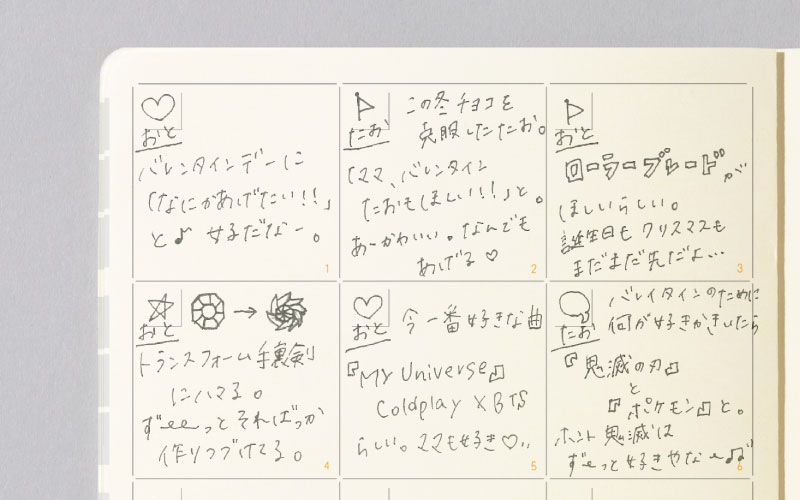 おと
バレンタインデーに
「なにかあげたい!!」
と♪ 女子だなー。
1
たお
この冬チョコを
克服したたお。
「ママ、バレンタイン
たおもほしい!!」と。
あーかわいい。なんでも
あげる♡
2
おと
ローラーブレードが
ほしいらしい。
誕生日も クリスマスも
まだまだ先だよ…
3
おと
トランスフォーム手裏剣
にハマる。
ずーっとそればっか
作りつづけてる。
4
おと
今一番好きな曲
『My Universe』
Coldplay X BTS
らしい。ママも好き♡..
5
たお
バレイタインのために
何が好きかきいたら
『鬼滅の刃』
と
『ポケモン』と。
ホント鬼滅は
ずーっと好きやな〜♫
6